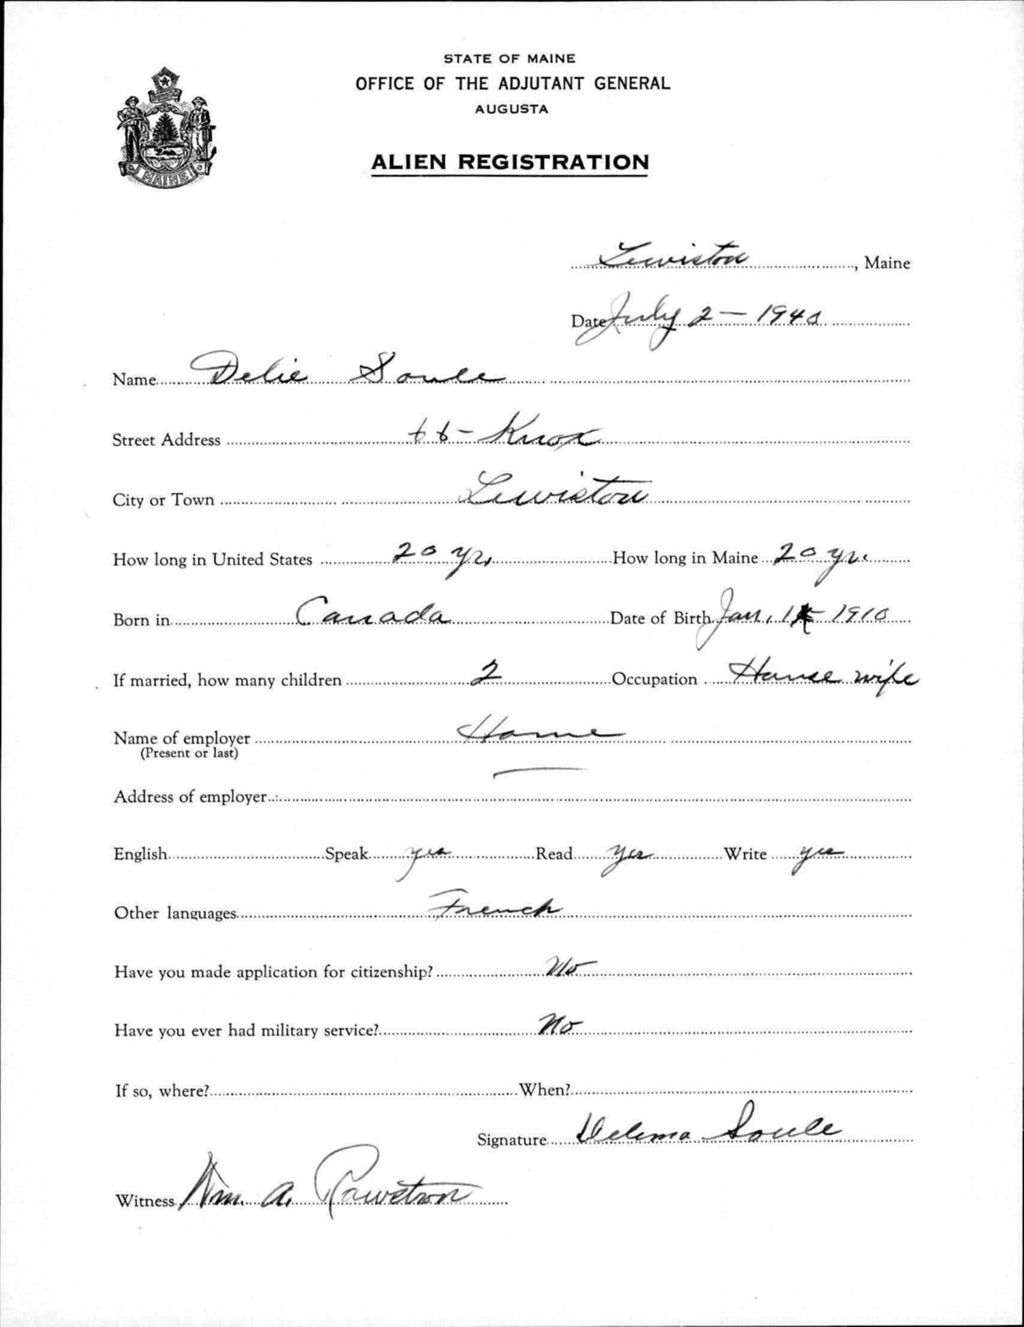 STATE OF MAINE
OFFICE OF THE ADJUTANT GENERAL
AUGUSTA
ALIEN REGISTRATION
MAINE
Lewiston, Maine
Date July 2 - 1940
Name Delie Soule
Street Address 66 - Knox
City or Town Lewiston
How long in United States 20 yr. How long in Maine 20 yr.
Born in Canada Date of Birth Jan. 1 - 1910
If married, how many children 2 Occupation House wife
Name of employer Home
(Present or last)
Address of employer —
English Speak yes Read yes Write yes
Other languages French
Have you made application for citizenship? No
Have you ever had military service? No
If so, where? When?
Signature Delima Soule
Witness Wm. A. Rawstron